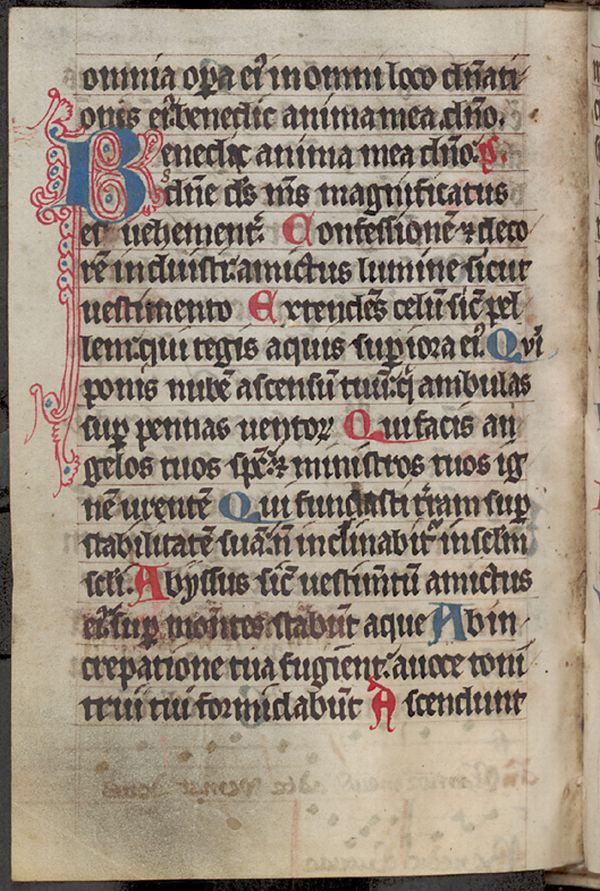 omnia op̱a eiꝰ in omni loco dn̄ati
onis eiꝰ: benedic anima mea dn̄o.
Benedic anima mea dn̄o: p̄s.
dn̄e ds̄ ms̄ magnificatus
es uehement᷑. Confessionē ⁊ deco
rē induisti: amictus lumine sicut
uestimento Extendēs celū sic̄ pel
lem: qui tegis aquis sup̱iora eiꝰ. Qui
ponis nubē ascensū tuū: q̄ ambulas
sup̱ pennas uentoꝝ Qui facis an
gelos tuos sp̄c̄: ⁊ ministros tuos ig
nē urentē Qui fundasti t̄ram sup̱
stabilitatē suā: n̄ inclinabit᷑ in sclm̄
scli. Abyssus sic̄ uestim̄tū amictus
eiꝰ: sup̱ montes stabūt aque Ab in
crepatione tua fugient: a uoce toni
trui tui formidabūt Ascendunt